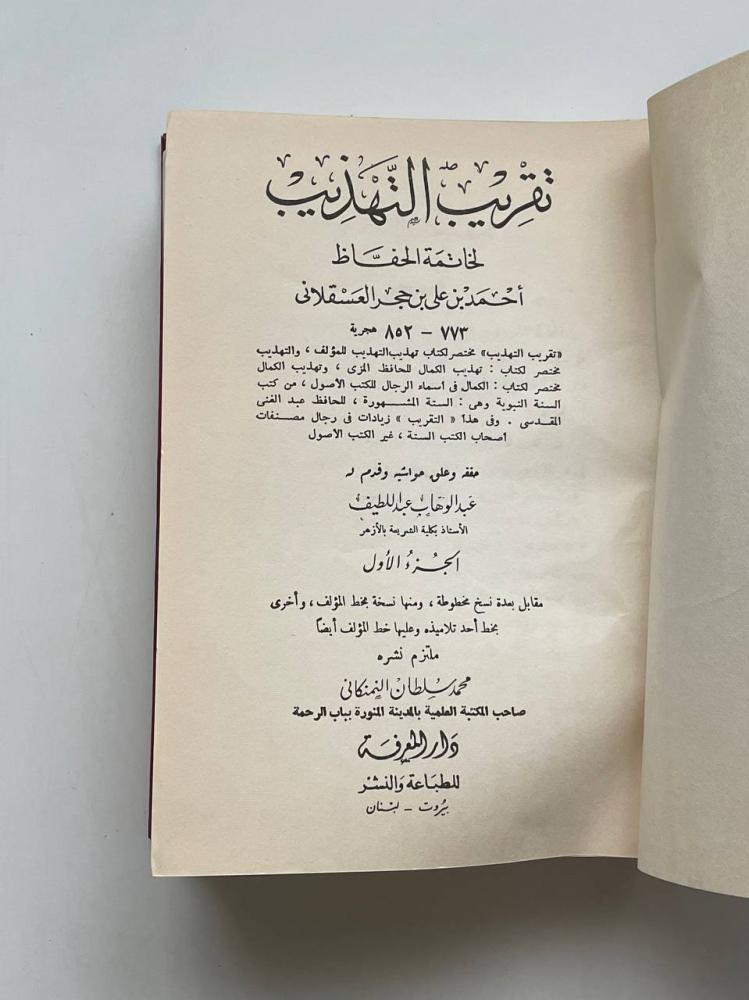 تقريب التهذيب
لخاتمة الحفاظ
أحمد بن على بن حجر العسقلانى
٧٧٣ - ٨٥٢ هجرية
«تقريب التهذيب» مختصر لكتاب تهذيب التهذيب للمؤلف ، والتهذيب
مختصر لكتاب : تهذيب الكمال للحافظ المزى ، وتهذيب الكمال
مختصر لكتاب : الكمال فى أسماء الرجال للكتب الأصول ، من كتب
السنة النبوية وهى : الستة المشهورة ، للحافظ عبد الغنى
المقدسى . وفى هذا « التقريب » زيادات فى رجال مصنفات
أصحاب الكتب الستة ، غير الكتب الأصول
حققه وعلق حواشيه وقدم له
عبد الوهاب عبد اللطيف
الأستاذ بكلية الشريعة بالأزهر
الجزء الأول
مقابل بعدة نسخ مخطوطة ، ومنها نسخة بخط المؤلف ، وأخرى
بخط أحد تلاميذه وعليها خط المؤلف أيضاً
ملتزم نشره
محمد سلطان النمنكانى
صاحب المكتبة العلمية بالمدينة المنورة بباب الرحمة
دار المعرفة
للطباعة والنشر
بيروت - لبنان